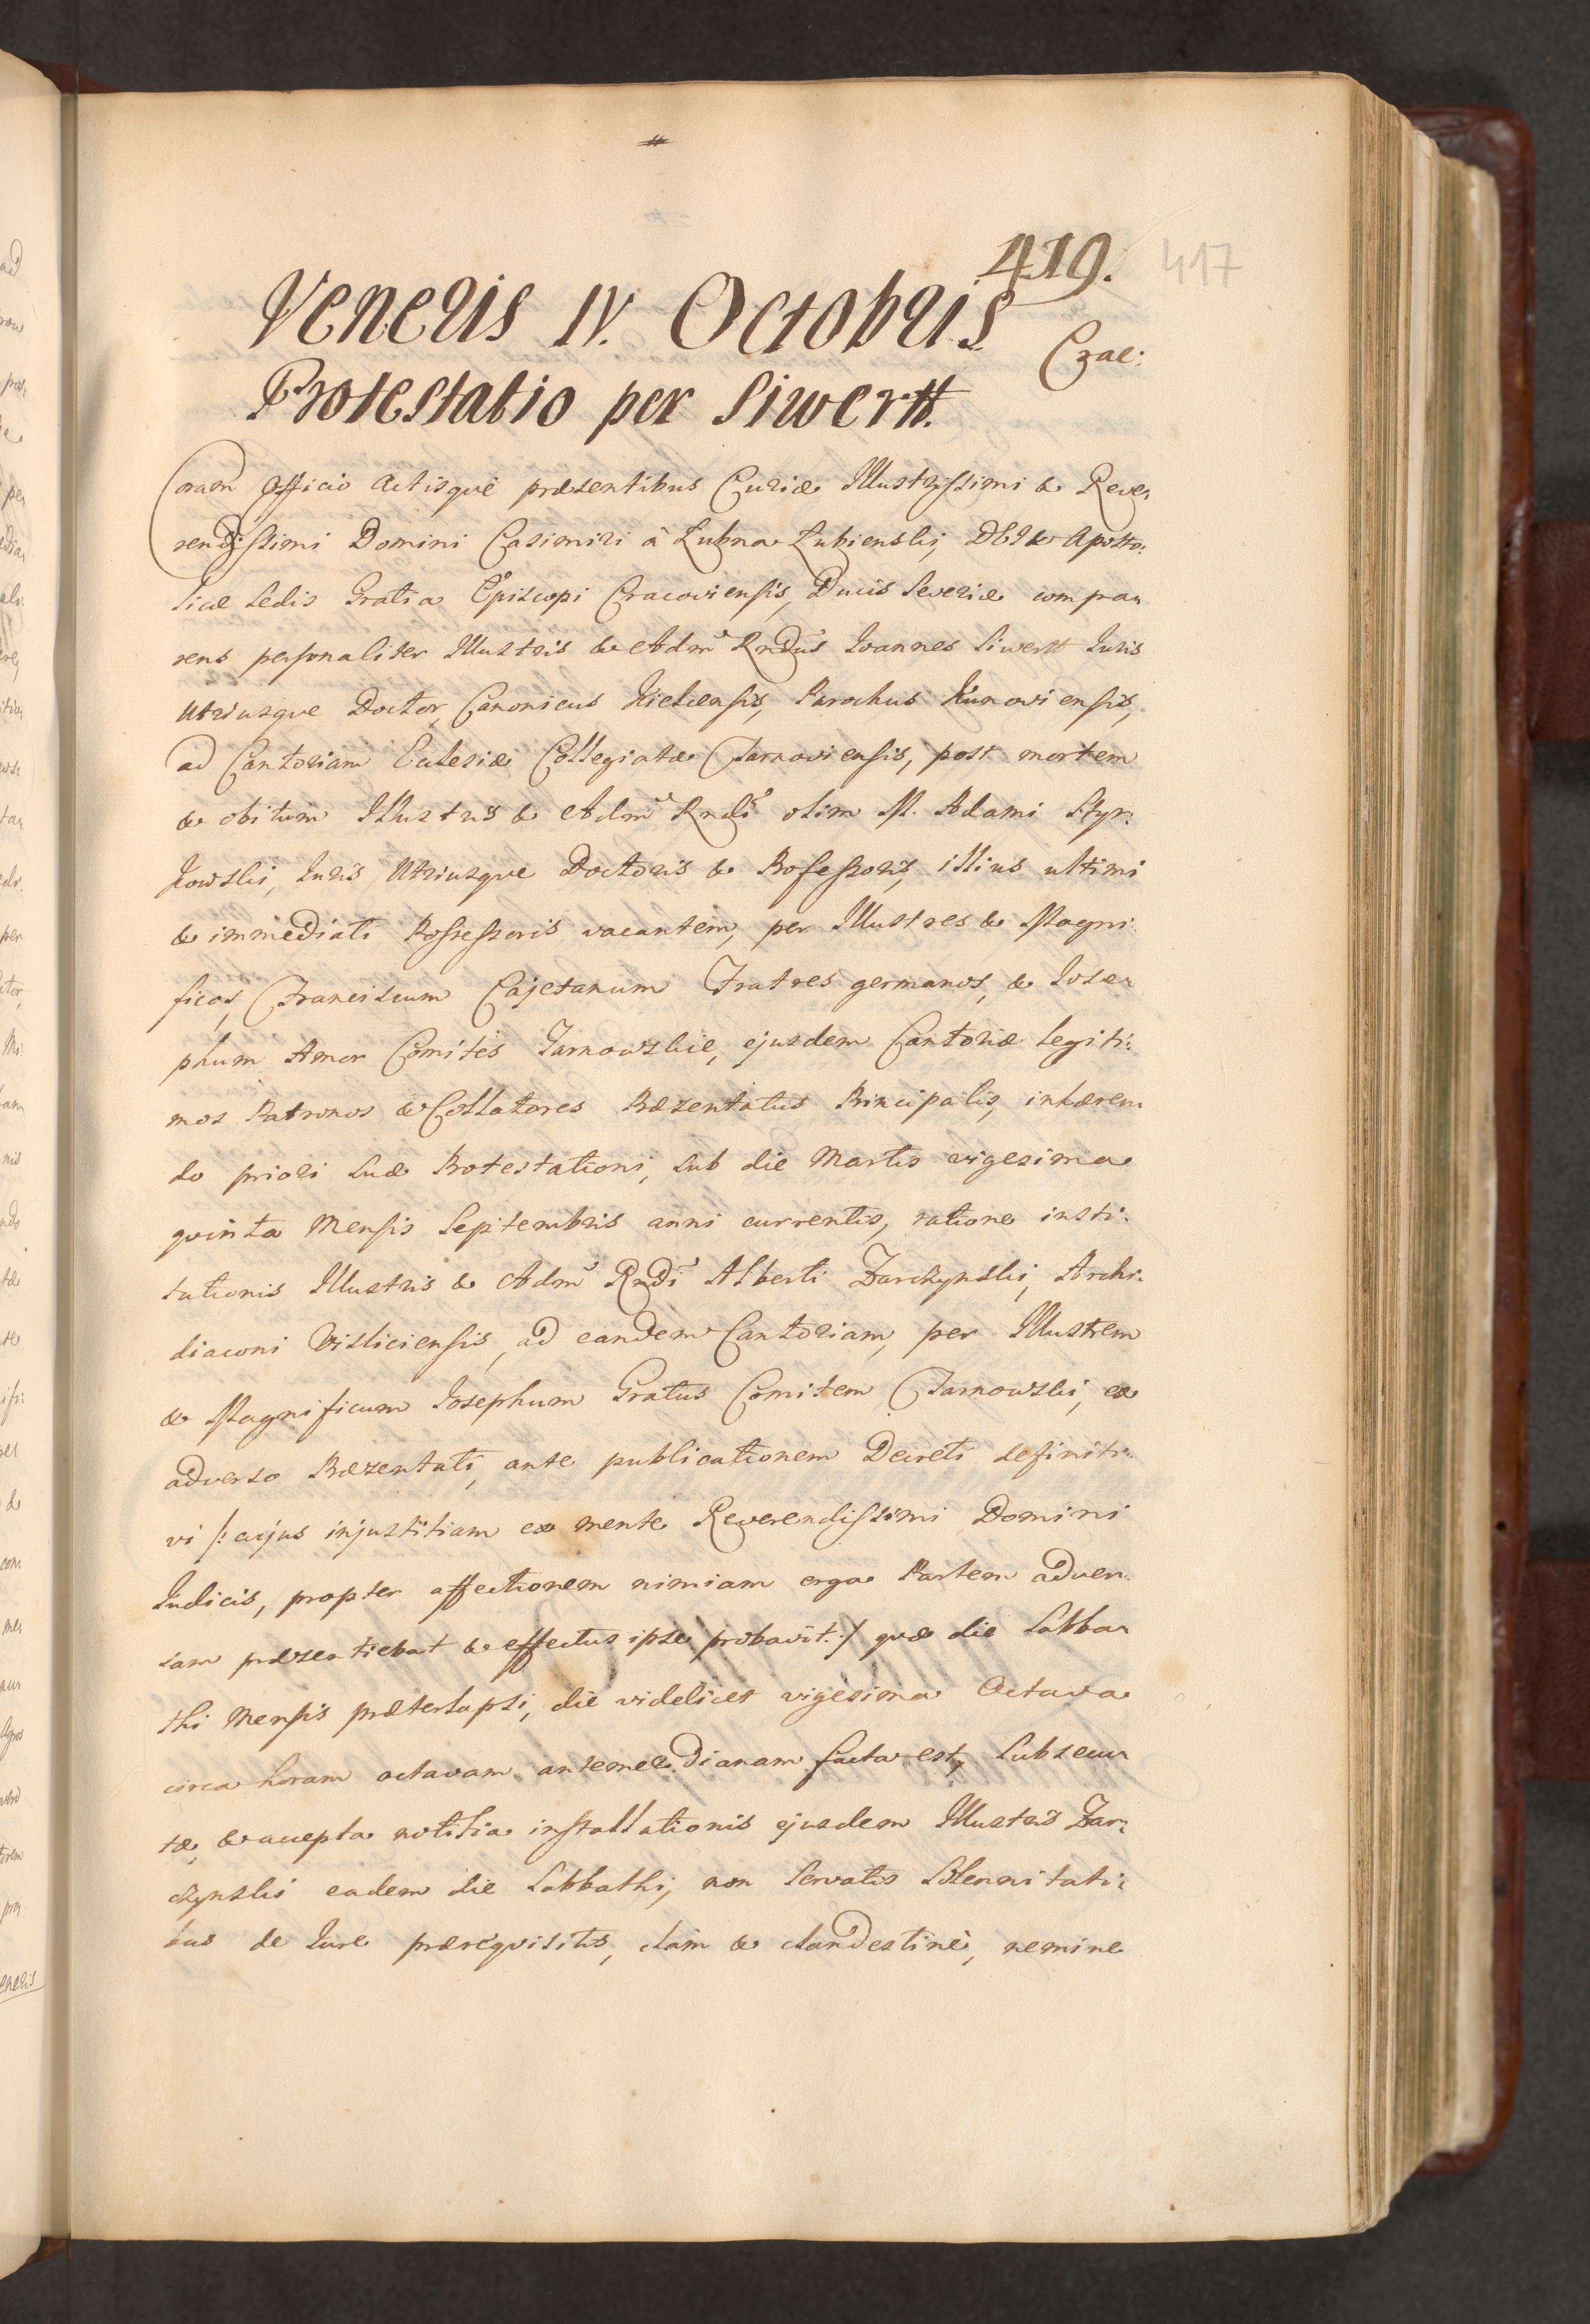 419. 417
Veneris IV. Octobris
Crac:
Protestatio per Siwertt.
Coram Officio Actisque præsentibus Curiæ Illustrissimi & Reve,
rendissimi Domini Casimiri à Lubna Lubienski, DEI & Aposto:
licæ Sedis Gratia Episcopi Cracoviensis, Ducis Severiæ compa,
rens personaliter Illustris & Adm Rndus Ioannes Siwertt Iuris
Utriusque Doctor, Canonicus Kielcensis, Parochus Kunoviensis,
ad Cantoriam Eclesiæ Collegiatæ Tarnoviensis, post mortem
& obitum Illustris & Adm Rndi olim M. Adami Styr:
kowski, Iuris Utriusque Doctoris & Professoris, illius ultimi
& immediati Possessoris vacantem, per Illustres & Magni:
ficos, Franciscum Cajetanum Fratres germanos, & Iose,
phum Amor Comites Tarnowskie, ejusdem Cantoriæ legiti:
mos Patronos & Collatores Præzentatus Principalis, inhæren,
do priori suæ Protestationi, sub die Martis vigesima
quinta Mensis Septembris anni currentis, ratione insti:
tutionis Illustris & Adm Rndi Alberti Zarczynski, Archi:
diaconi Visliciensis, ad eandem Cantoriam, per Illustrem
& Magnificum Iosephum Gratus Comitem Tarnowski, ex
adverso Præzentati, ante publicationem Decreti definiti:
vi /: cujus injustitiam ex mente Reverendissimi Domini
Iudicis, propter affectionem nimiam erga Partem adver:
sam præsentiebat & effectus ipse probavit :/ quæ die Sabba,
thi Mensis præterlapsi, die videlicet vigesima Octava
circa horam octavam antemeridianam facta est, subsecu,
tæ, & accepta notitia installationis ejusdem Illustris Zar:
czynski eadem die Sabbathi, non servatis Solennitati:
bus de Iure prærequisitis, clam & clandestinè, nemine